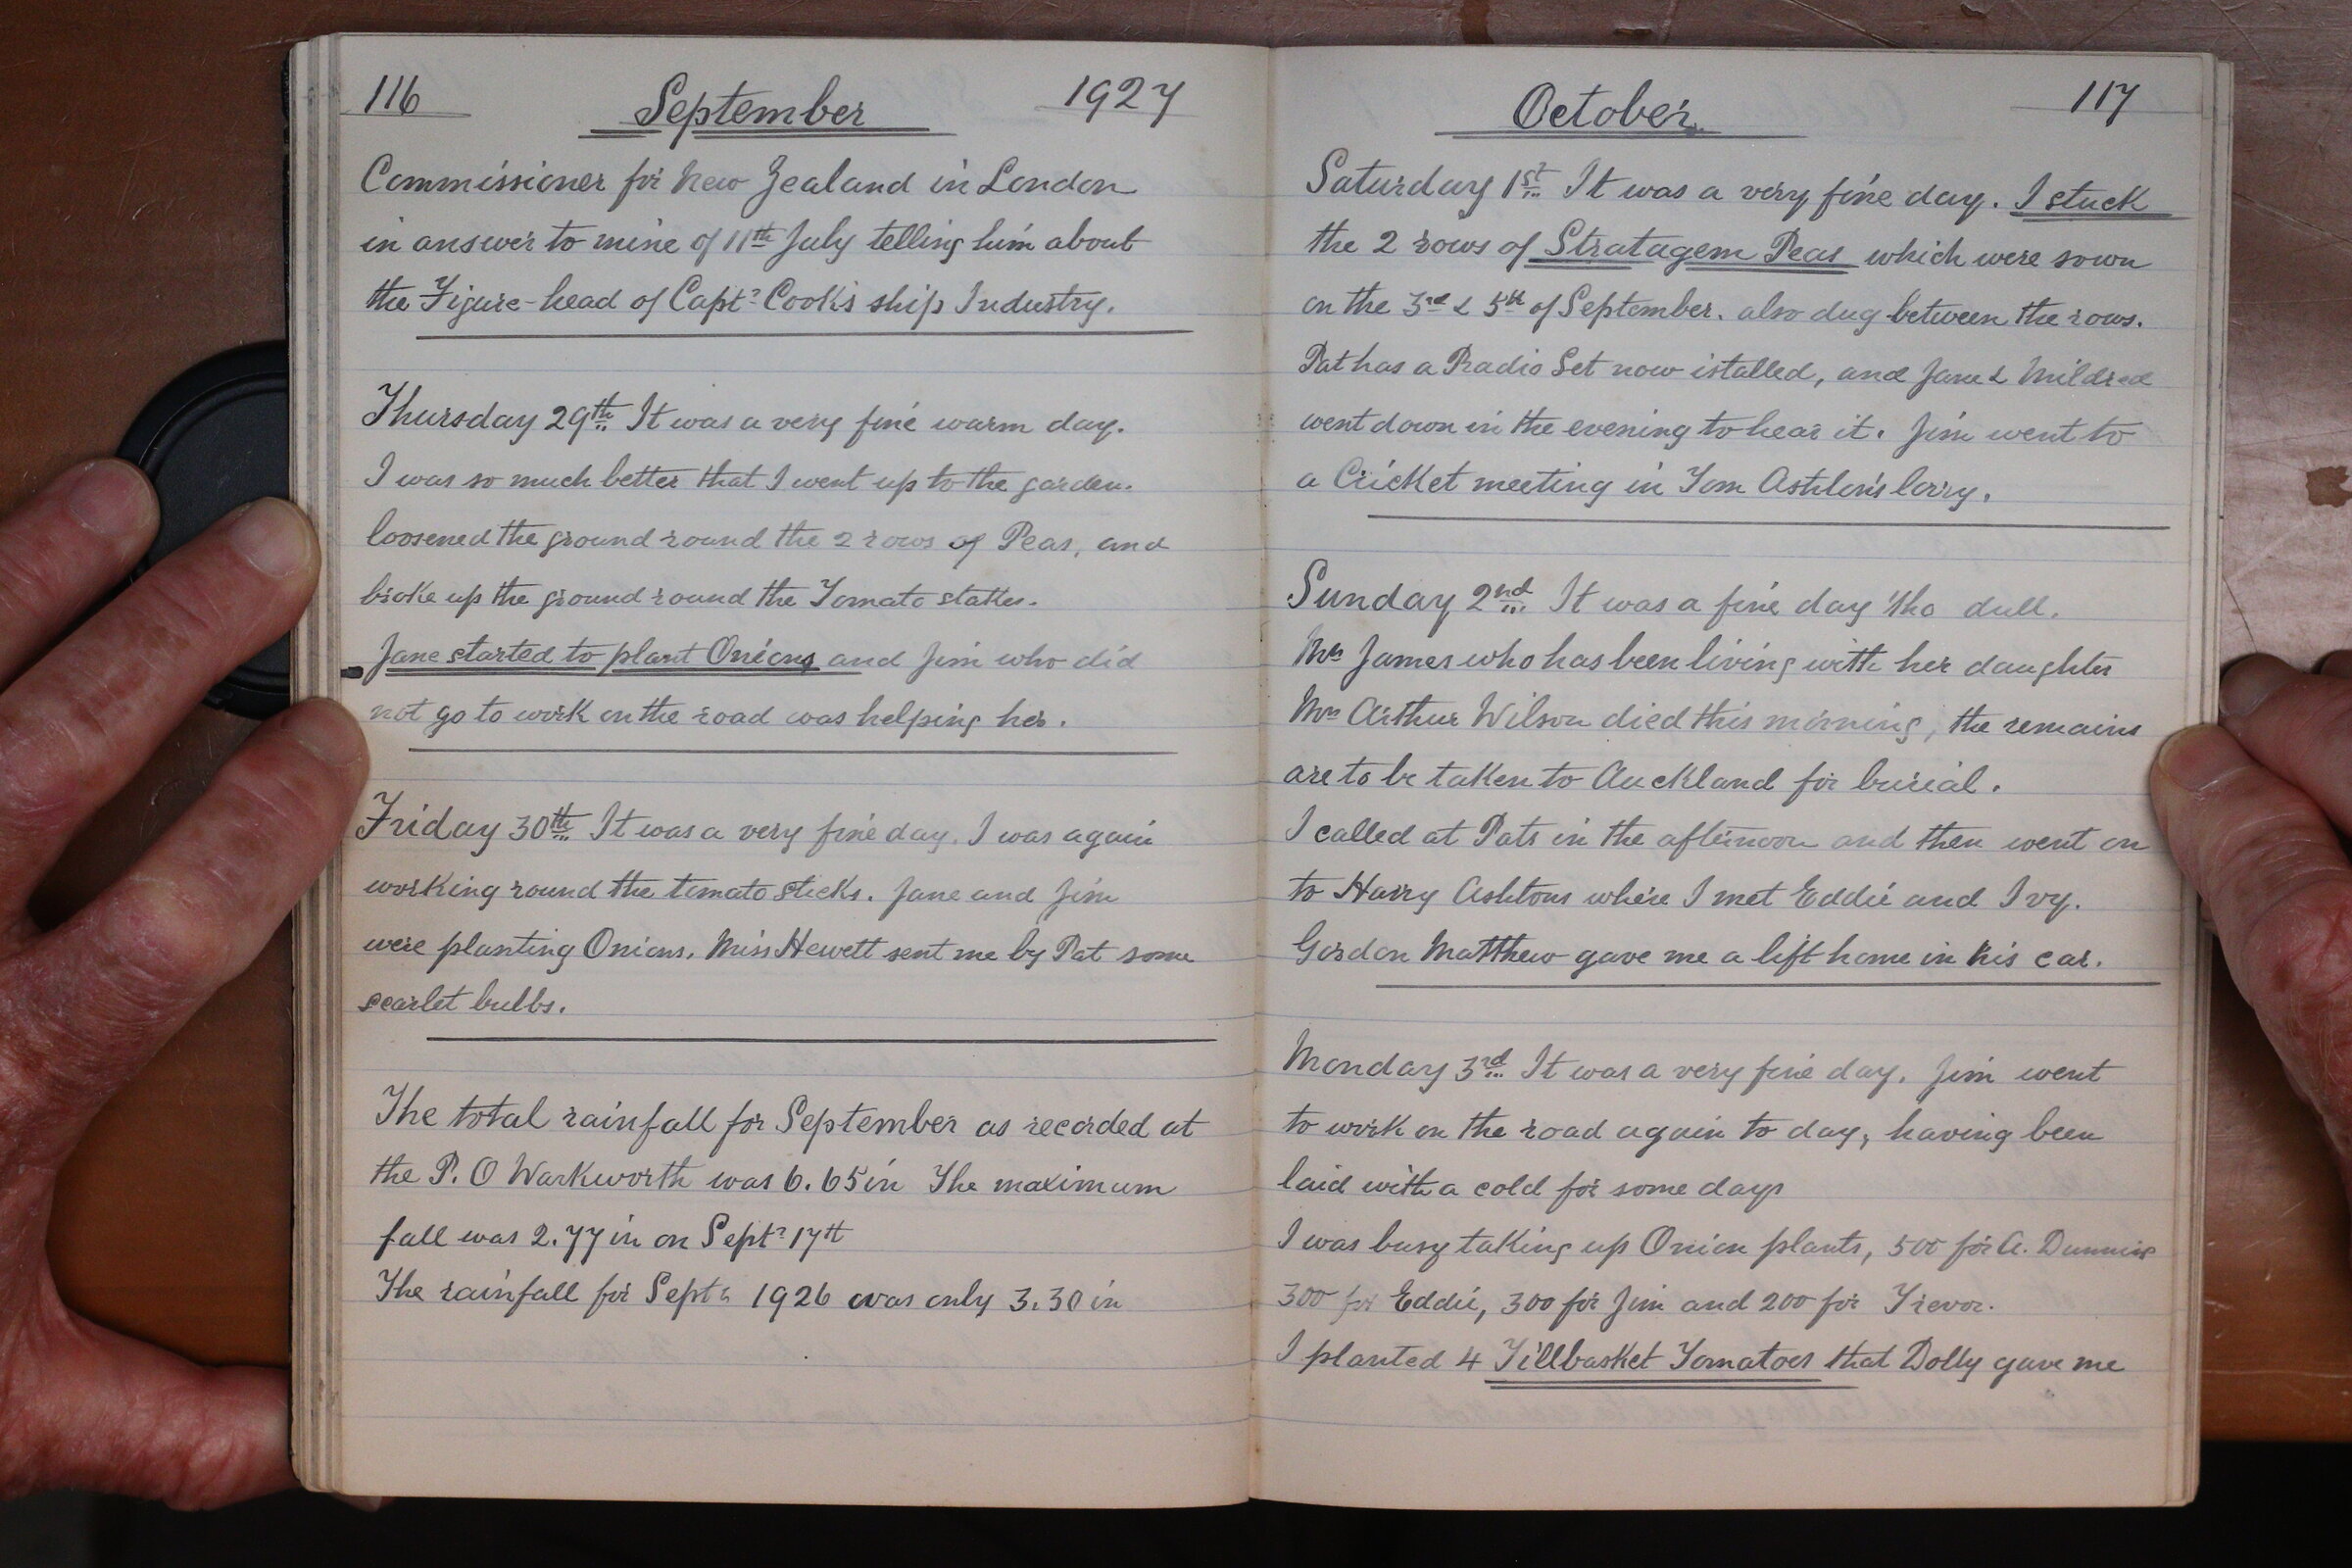 116 September 1927
Commissioner for New Zealand in London
in answer to mine of 11th July telling him about
the Figure-head of Captn Cook's ship Industry.
Thursday 29th It was a very fine warm day.
I was so much better that I went up to the garden.
loosened the ground round the 2 rows of Peas, and
broke up the ground round the Tomato stakes.
Jane started to plant Onions and Jim who did
not go to work on the road was helping her.
Friday 30th It was a very fine day. I was again
working round the tomato sticks. Jane and Jim
were planting Onions. Miss Hewett sent me by Pat some
scarlet bulbs.
The total rainfall for September as recorded at
the P. O Warkworth was 6.65 in The maximum
fall was 2.77 in on Septr 17th
The rainfall for Septr 1926 was only 3.30 in
October 117
Saturday 1st It was a very fine day. I stuck
the 2 rows of Stratagem Peas which were sown
on the 3rd & 5th of September. also dug between the rows.
Pat has a Radio Set now istalled, and Jane & Mildred
went down in the evening to hear it. Jim went to
a Cricket meeting in Tom Ashton's lorry.
Sunday 2nd It was a fine day 'tho dull.
Mrs James who has been living with her daughter
Mrs Arthur Wilson died this morning, the remains
are to be taken to Auckland for burial.
I called at Pats in the afternoon and then went on
to Harry Ashtons where I met Eddie and Ivy.
Gordon Matthew gave me a lift home in his car.
Monday 3rd It was a very fine day. Jim went
to work on the road again to day, having been
laid with a cold for some days
I was busy taking up Onion plants, 500 for A. Dunning
300 for Eddie, 300 for Jim and 200 for Trevor.
I planted 4 Fillbasket Tomatoes that Dolly gave me